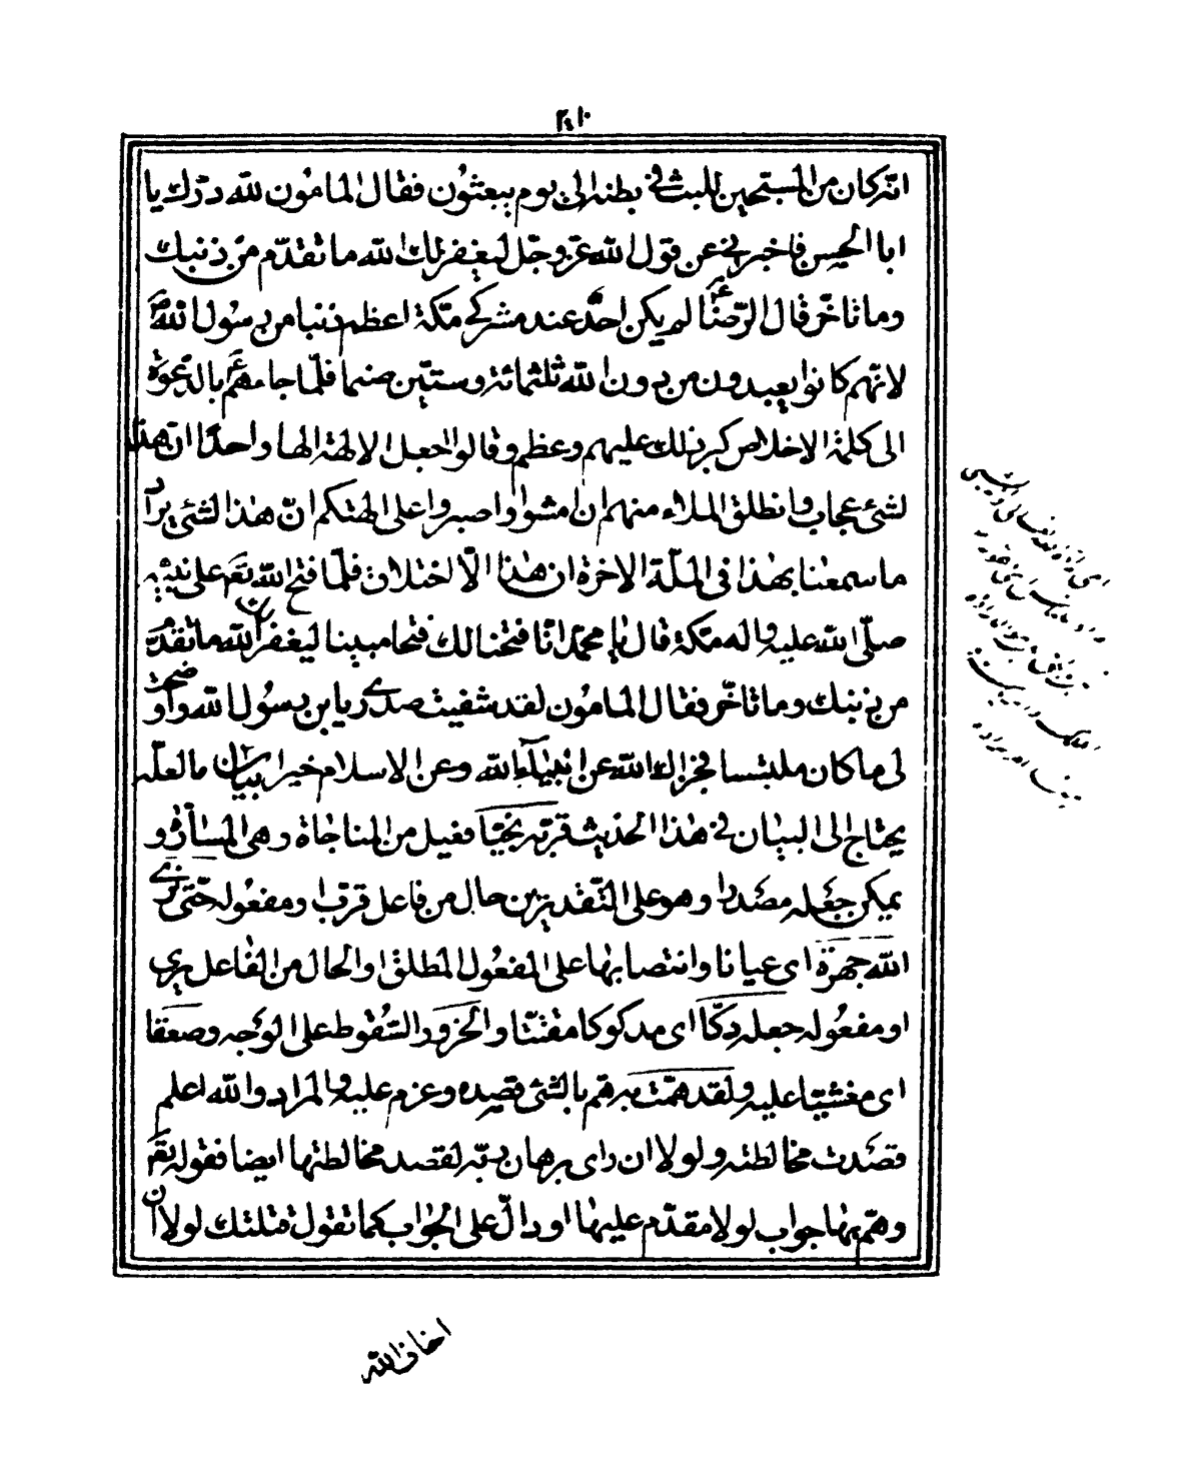 ٢٤٠
انه كان من المسبحين للبث فى بطنه الى يوم يبعثون فقال المامون لله درك يا
ابا الحسن فاخبرنى عن قول الله عز وجل ليغفر لك الله ما تقدم من ذنبك
وما تاخر قال الرضا ع لم يكن احد عند مشركى مكة اعظم ذنبا من رسول الله ص
لانهم كانوا يعبدون من دون الله ثلثمائة وستين صنما فلما جاءهم ع بالدعوة
الى كلمة الاخلاص كبر ذلك عليهم وعظم وقالوا اجعل الالهة الها واحدا ان هذا
لشئ عجاب وانطلق الملاء منهم ان امشوا واصبروا على الهتكم ان هذا لشئ يراد
ما سمعنا بهذا فى الملة الاخرة ان هذا الا اختلاق فلما فتح الله تعم على نبيه
صلى الله عليه واله مكة قال يا محمد انا فتحنا لك فتحا مبينا ليغفر لك الله ما تقدم
من ذنبك وما تاخر فقال المامون لقد شفيت صدرى يا بن رسول الله واوضحت
لى ما كان ملتبسا فجزاك الله عن انبيائه الله وعن الاسلام خيرا بيان ما لعله
يحتاج الى البيان فى هذا الحديث قربه نجيا فعيل من المناجاة وهى المسارة و
يمكن جعله مصدرا وهو على التقديرين حال من فاعل قرب او مفعوله حتى نرى
الله جهرة اى عيانا وانتصابها على المفعول المطلق او الحال من الفاعل نرى
او مفعوله جعله دكا اى مدكوكا مفتتا والخرور السقوط على الوجه وصعقا
اى مغشيا عليه ولقد همت به هم بالشئ قصده وعزم عليه والمراد والله اعلم
قصدت مخالطته ولولا ان راى برهان ربه لقصد مخالطتها ايضا فقوله تعم
وهم بها جواب لولا مقدم عليها او دال على الجواب كما تقول قتلتك لولا ان
اخاف الله